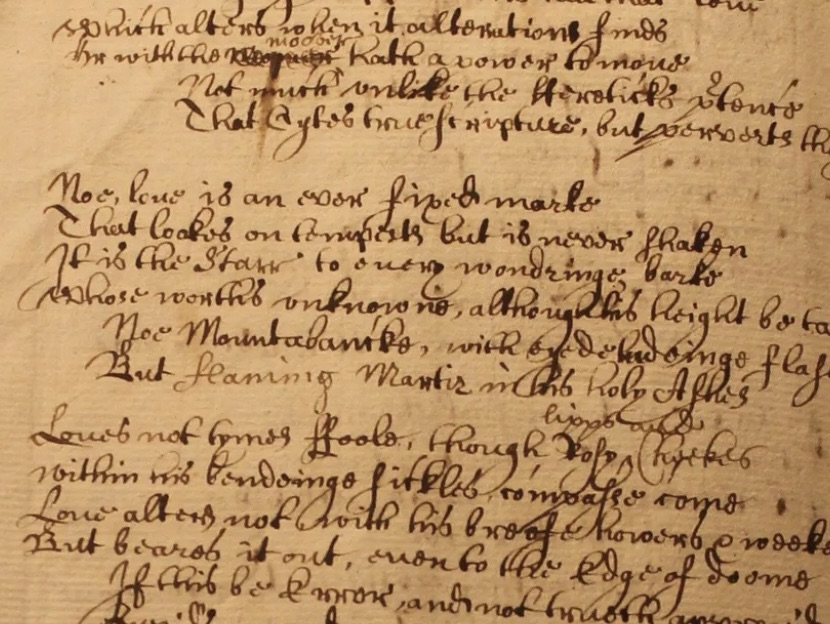 Which alters when it alterations finds
Or with the moouer hath a power to moue
Not much vnlike the Hereticks ptence
That Cytes true scripture, but perverts
Noe, loue is an ever fixed marke
That lookes on tempests but is never shaken
It is the Starr to euery wondringe barke
Whose worth's vnknowne, although his height be
Noe Mountabancke, with eyedeludeinge
But flaming Martir in his holy Ashes
Loues not tymes ffoole, though Rosy lipps and Cheekes
within his bendeinge sickles compasse come
Loue alters not with his breife howers &
But beares it out, even to the Edge of doome
If this be Error, and not trueth